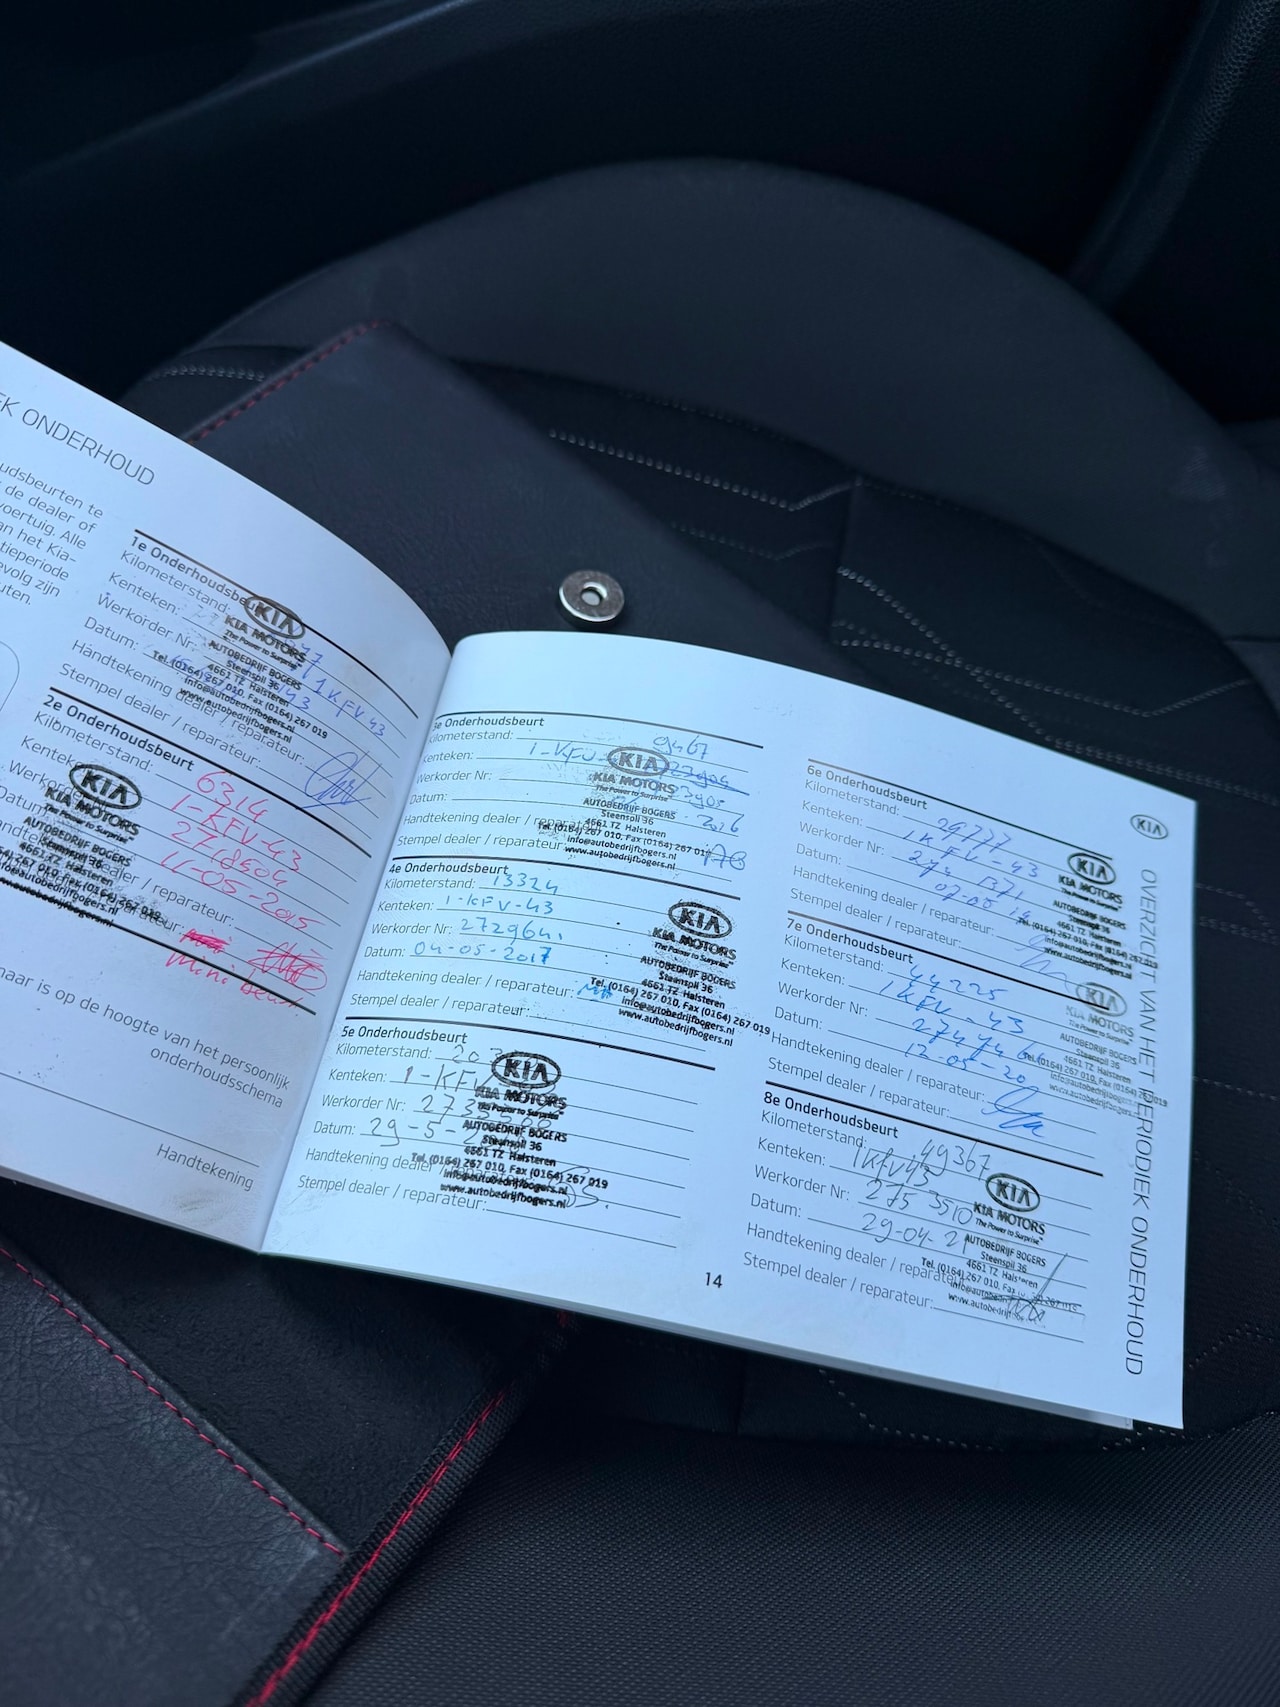 EK ONDERHOUD
udsbeurten te
de dealer of
voertuig. Alle
an het Kia-
tieperiode
evolg zijn
uten.
1e Onderhoudsbeurt
Kilometerstand:
Kenteken: 1 KFV 43
Werkorder Nr:
Datum:
Handtekening dealer / reparateur:
Stempel dealer / reparateur:
KIA
KIA MOTORS
The Power to Surprise
AUTOBEDRIJF BOGERS
Steenspil 36
4661 TZ Halsteren
Tel. (0164) 267 010, Fax (0164) 267 019
info@autobedrijfbogers.nl
www.autobedrijfbogers.nl
2e Onderhoudsbeurt
Kilometerstand: 6314
Kenteken: 1-KFV-43
Werkorder Nr: 2718504
Datum: 11-05-2015
Handtekening dealer / reparateur:
Stempel dealer / reparateur: mini beurt
KIA
KIA MOTORS
The Power to Surprise
AUTOBEDRIJF BOGERS
Steenspil 36
4661 TZ Halsteren
(0164) 267 010, Fax (0164) 267 019
info@autobedrijfbogers.nl
www.autobedrijfbogers.nl
naar is op de hoogte van het persoonlijk
onderhoudsschema
Handtekening
3e Onderhoudsbeurt
Kilometerstand: 9467
Kenteken: 1-KFV
Werkorder Nr:
Datum: 2016
Handtekening dealer / reparateur:
Stempel dealer / reparateur:
KIA
KIA MOTORS
The Power to Surprise
AUTOBEDRIJF BOGERS
Steenspil 36
4661 TZ Halsteren
Tel. (0164) 267 010, Fax (0164) 267 019
info@autobedrijfbogers.nl
www.autobedrijfbogers.nl
4e Onderhoudsbeurt
Kilometerstand: 13324
Kenteken: 1-KFV-43
Werkorder Nr: 2729641
Datum: 04-05-2017
Handtekening dealer / reparateur:
Stempel dealer / reparateur:
KIA
KIA MOTORS
The Power to Surprise
AUTOBEDRIJF BOGERS
Steenspil 36
4661 TZ Halsteren
Tel. (0164) 267 010, Fax (0164) 267 019
info@autobedrijfbogers.nl
www.autobedrijfbogers.nl
5e Onderhoudsbeurt
Kilometerstand:
Kenteken: 1-KFV
Werkorder Nr:
Datum: 29-5-
Handtekening dealer / reparateur:
Stempel dealer / reparateur:
KIA
KIA MOTORS
The Power to Surprise
AUTOBEDRIJF BOGERS
Steenspil 36
4661 TZ Halsteren
Tel. (0164) 267 010, Fax (0164) 267 019
info@autobedrijfbogers.nl
www.autobedrijfbogers.nl
14
6e Onderhoudsbeurt
Kilometerstand: 29777
Kenteken: 1 KFV-43
Werkorder Nr:
Datum:
Handtekening dealer / reparateur:
Stempel dealer / reparateur:
KIA
KIA MOTORS
The Power to Surprise
AUTOBEDRIJF BOGERS
Steenspil 36
4661 TZ Halsteren
Tel. (0164) 267 010, Fax (0164) 267 019
info@autobedrijfbogers.nl
www.autobedrijfbogers.nl
7e Onderhoudsbeurt
Kilometerstand: 44225
Kenteken: 1KFV-43
Werkorder Nr:
Datum: 12-05-20
Handtekening dealer / reparateur:
Stempel dealer / reparateur:
KIA
KIA MOTORS
AUTOBEDRIJF BOGERS
Steenspil 36
4661 TZ Halsteren
Tel. (0164) 267 010, Fax (0164) 267 019
info@autobedrijfbogers.nl
www.autobedrijfbogers.nl
8e Onderhoudsbeurt
Kilometerstand: 49367
Kenteken: 1KFV43
Werkorder Nr: 2753510
Datum: 29-04-21
Handtekening dealer / reparateur:
Stempel dealer / reparateur:
KIA
KIA MOTORS
The Power to Surprise
AUTOBEDRIJF BOGERS
Steenspil 36
4661 TZ Halsteren
Tel. (0164) 267 010, Fax
info@autobedrijfbogers.nl
www.autobedrijfbogers.nl
KIA
OVERZICHT VAN HET PERIODIEK ONDERHOUD